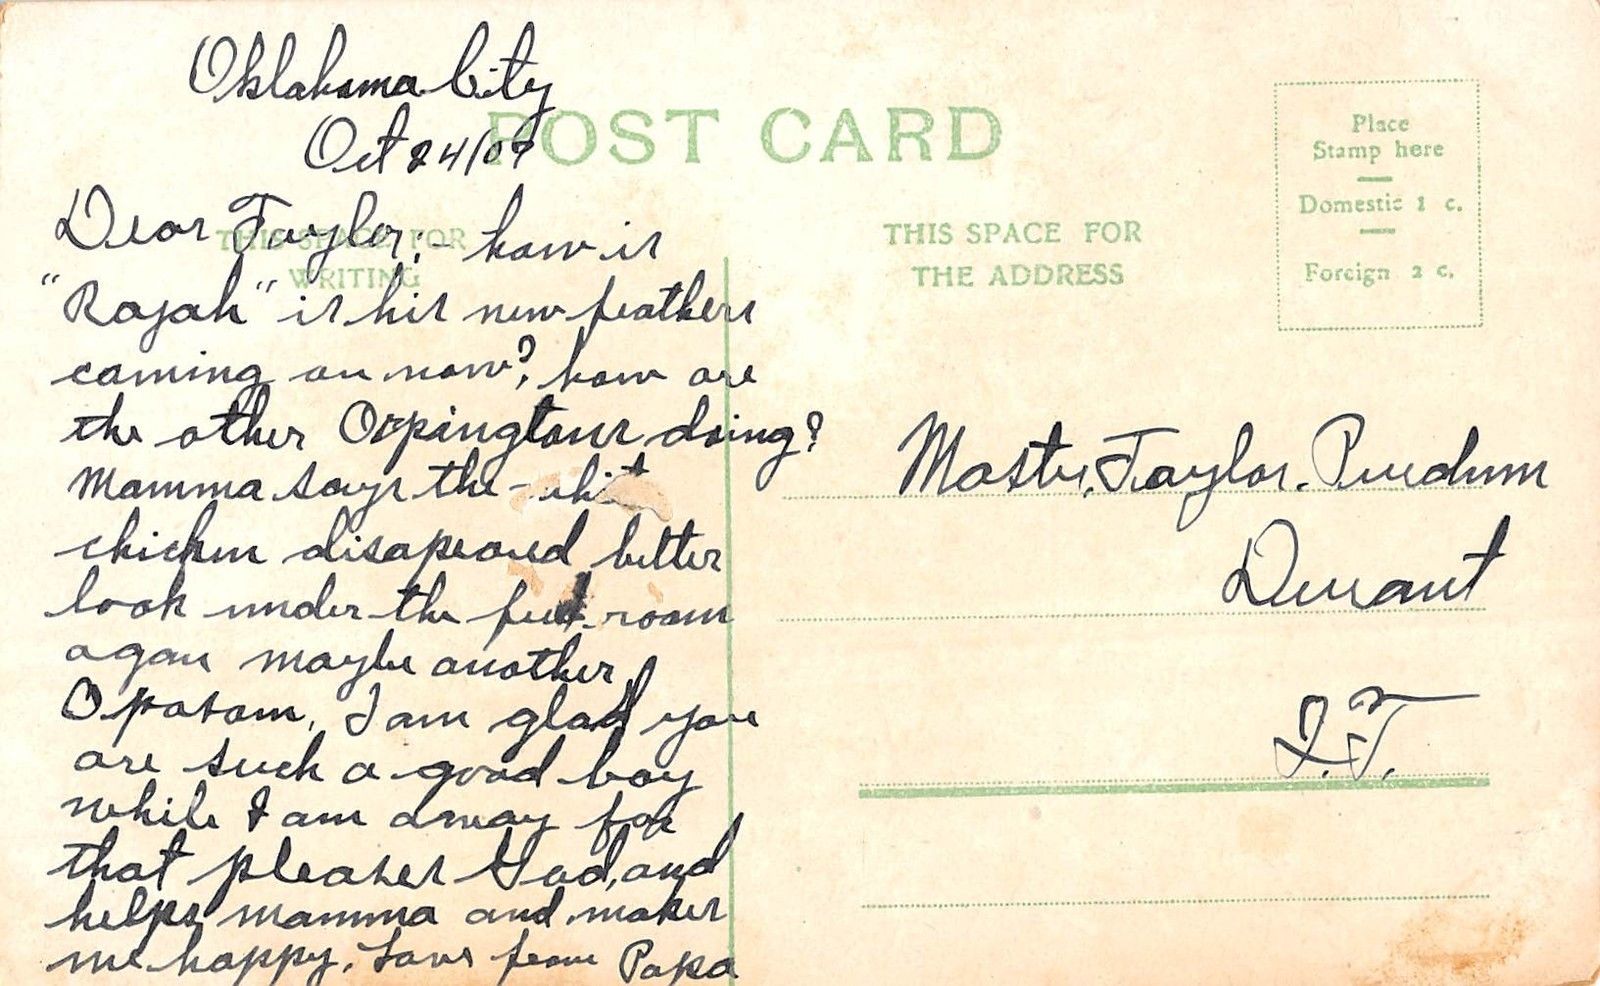 Oklahoma City
Oct 24/07
POST CARD
THIS SPACE FOR
WRITING
Dear Taylor:- how is
"Rajah" is his new feathers
coming on now? how are
the other Orpingtons doing?
Mamma says the whit
chicken disapeared better
look under the feed room
agan maybe another
Opossom, I am glad you
are such a good boy
while I am away for
that pleases God, and
helps mamma and makes
me happy. Love from Papa
THIS SPACE FOR
THE ADDRESS
Place
Stamp here
Domestic 1 c.
Foreign 2 c.
Master. Taylor. Purdum
Durant
I.T.